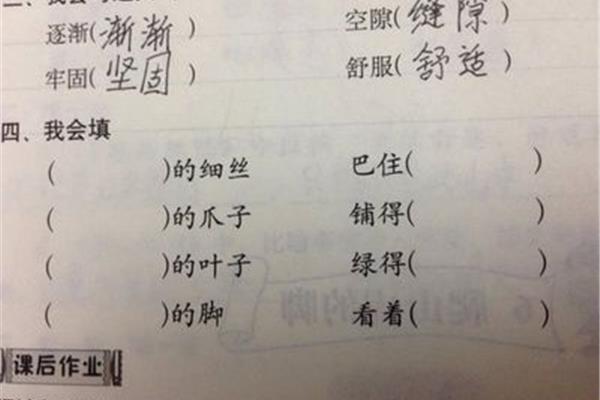 逐渐(渐渐) 空隙(缝隙)
牢固(坚固) 舒服(舒适)
四、我会填
( )的细丝 巴住( )
( )的爪子 铺得( )
( )的叶子 绿得( )
( )的脚 看着( )
课后作业